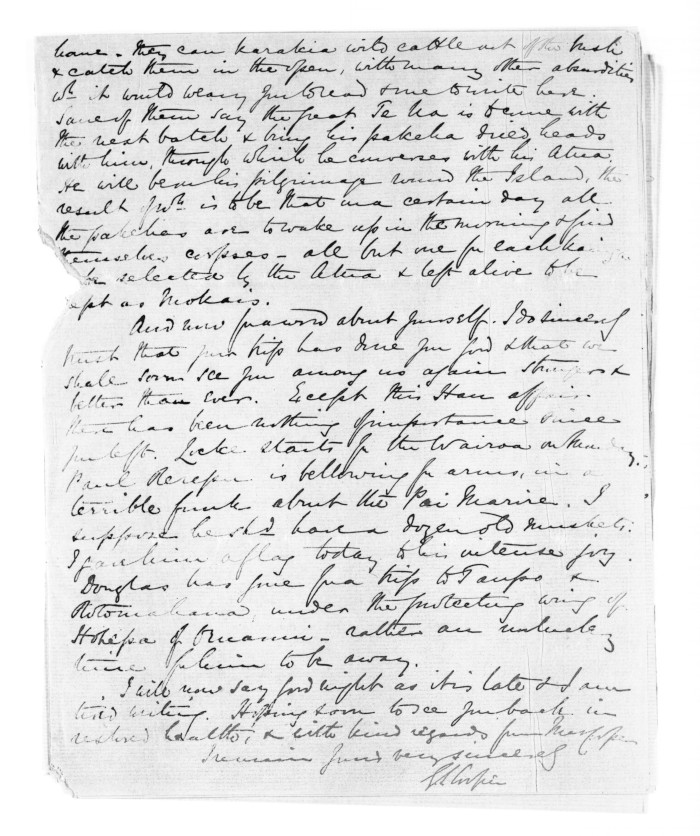 have – They can karakia wild cattle out of the bush
& catch them in the open, with many other absurdities
wh it would weary you to read & me to write here.
Some of them say the great Te Ua is to come with
the next batch & bring his pakeha dried heads
with him, through which he converses with his Atua.
He will be on his pilgrimage round the Island, the
result of wh. is to be that on a certain day all
the pakehas are to wake up in the morning & find
themselves corpses – all but one for each
be selected by the Atua & left alive to be
kept as Mokais.
And now for a word about yourself. I do sincerely
trust that your trip has done you good & that we
shall soon see you among us again stronger &
better than ever. Except this Hau affair.
there has been nothing of importance since
you left. Locke starts for the Wairoa on Monday.
Paul is bellowing for arms, in a
terrible funk about the Pai Marire. I
suppose he shd have a dozen old muskets.
I gave him a flag today to his intense joy.
Douglas has gone for a trip to Taupo &
Rotomahana, under the protecting wing of
Hohepa of – rather an unlucky
time for him to be away.
I will now say good night as it is late & I am
tired writing. Hoping soon to see you back in
restored health, & with kind regards from Mrs Cooper
I remain yours very sincerely
GS Cooper